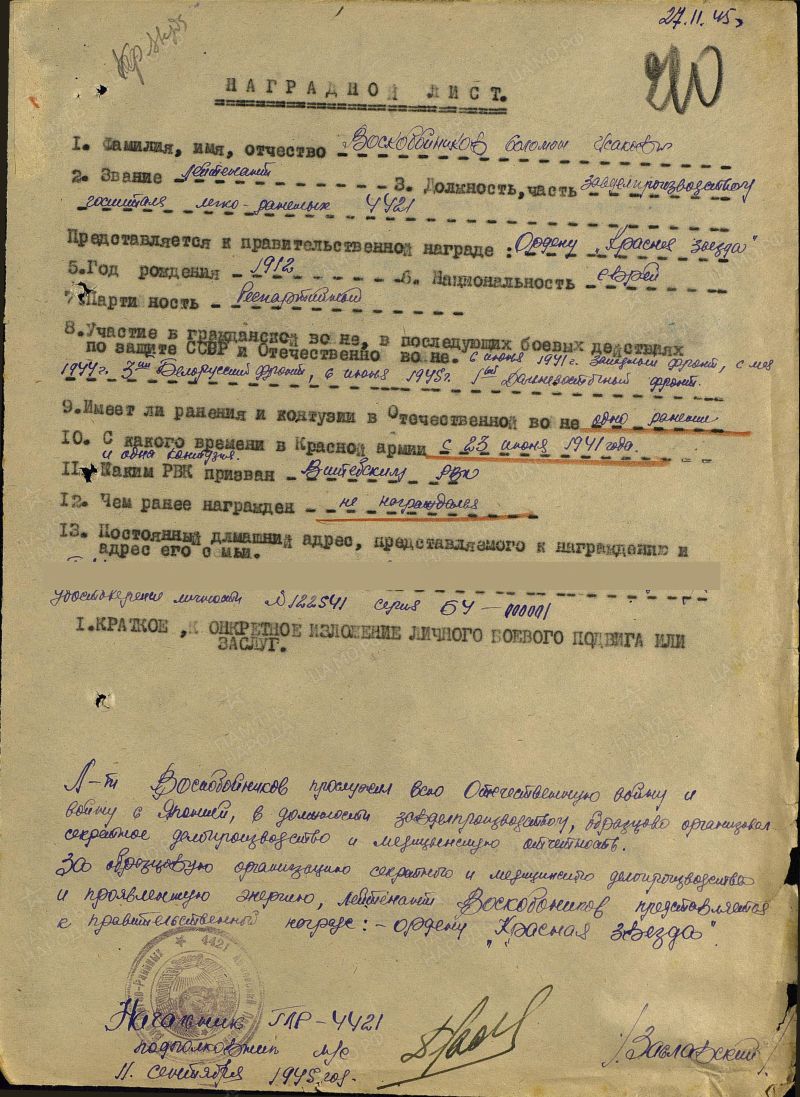 27.11.45г.
220
НАГРАДНОЙ ЛИСТ.
1. Фамилия, имя, отчество Воскобойников Соломон Исакович
2. Звание лейтенант 3. Должность, часть завделпроизводством
госпиталя легко-раненых 4421
Представляется к правительственной награде: Ордену "Красная звезда"
5.Год рождения 1912 6. Национальность еврей
7.Парти ность беспартийный
8.Участие в гражданской во не, в последующих боевых действиях
по защите СССР и Отечественно во не. 6 июня 1941 г. Западный фронт, с мая
1944г. 3ий Белорусский фронт, 6 июня 1945г. 1ый Дальневосточный фронт.
9.Имеет ли ранения и контузии в Отечественной во не одно ранение
10. С какого времени в Красной армии с 23 июня 1941 года.
и одна контузия.
11. Каким РВК призван Витебским РВК
12. Чем ранее награжден не награждался
13. Постоянный длмашний адрес, представляемого к награждению и
адрес его семьи.
удостоверение личности №122541 серия БУ-
I.КРАТКОЕ ,К ОНКРЕТНОЕ ИЗЛОЖЕНИЕ ЛИЧНОГО БОЕВОГО ПОДВИГА ИЛИ
ЗАСЛУГ.
Л-т Воскобойников прослужил всю Отечественную войну и
войну с Японией, в должности завделпроизводством, образцово организовал
секретное делопроизводство и медицинскую отчетность.
За образцовую организацию секретного и медицинского делопроизводства
и проявленную энергию, лейтенант Воскобойников представляется
к правительственной награде: - ордену "Красная звезда".
4421
Начальник ГЛР-4421
подполковник м/с
/Заславский/
11. сентября 1945 год.